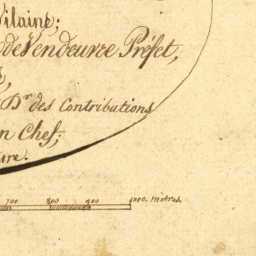 Vilaine;
de Vendeuvre Préfet,
Dr. des Contributions
n Chef;
ure.
700 800 900 1000. mètres.